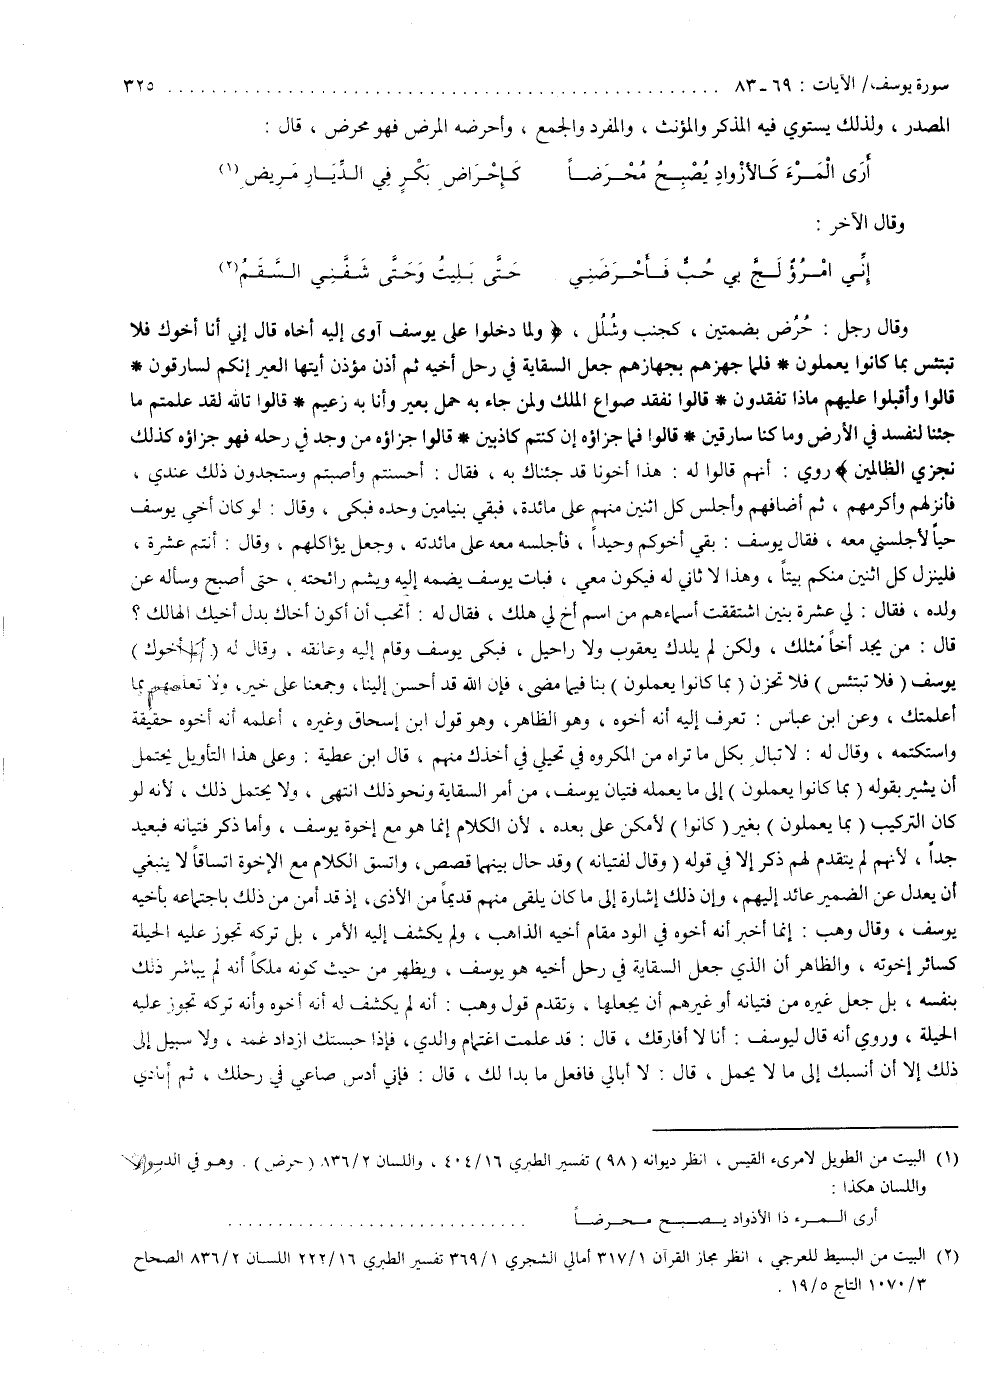 سورة يوسف/ الآيات : ٦٩ ـ ٨٣ ................................................ ٣٢٥
المصدر ، ولذلك يستوي فيه المذكر والمؤنث ، والمفرد والجمع ، وأحرضه المرض فهو محرض ، قال :
أَرَى الْمَرْءَ كَالأَزْوَادِ يُصْبِحُ مُحْرَضاً كَإِحْرَاضِ بَكْرٍ فِي الدِّيَارِ مَرِيضِ (١)
وقال الآخر :
إِنِّي امْرُؤٌ لَجَّ بِي حُبٌّ فَأَحْرَضَنِي حَتَّى بَلِيتُ وَحَتَّى شَفَّنِي السَّقَمُ (٢)
وقال رجل : حُرُض بضمتين ، كجنب وشُلُل ، ﴿ ولما دخلوا على يوسف آوى إليه أخاه قال إني أنا أخوك فلا
تبتئس بما كانوا يعملون * فلما جهزهم بجهازهم جعل السقاية في رحل أخيه ثم أذن مؤذن أيتها العير إنكم لسارقون *
قالوا وأقبلوا عليهم ماذا تفقدون * قالوا نفقد صواع الملك ولمن جاء به حمل بعير وأنا به زعيم * قالوا تالله لقد علمتم ما
جئنا لنفسد في الأرض وما كنا سارقين * قالوا فما جزاؤه إن كنتم كاذبين * قالوا جزاؤه من وجد في رحله فهو جزاؤه كذلك
نجزي الظالمين ﴾ روي : أنهم قالوا له : هذا أخونا قد جئناك به ، فقال : أحسنتم وأصبتم وستجدون ذلك عندي ،
فأنزلهم وأكرمهم ، ثم أضافهم وأجلس كل اثنين منهم على مائدة، فبقي بنيامين وحده فبكى ، وقال : لو كان أخي يوسف
حياً لأجلسني معه ، فقال يوسف : بقي أخوكم وحيداً ، فأجلسه معه على مائدته ، وجعل يؤاكلهم ، وقال : أنتم عشرة ،
فلينزل كل اثنين منكم بيتاً ، وهذا لا ثاني له فيكون معي ، فبات يوسف يضمه إليه ويشم رائحته ، حتى أصبح وسأله عن
ولده ، فقال : لي عشرة بنين اشتققت أسماءهم من اسم أخ لي هلك ، فقال له : أتحب أن أكون أخاك بدل أخيك الهالك ؟
قال : من يجد أخاً مثلك ، ولكن لم يلدك يعقوب ولا راحيل ، فبكى يوسف وقام إليه وعانقه ، وقال له ( أنا أخوك )
يوسف ( فلا تبتئس ) فلا تحزن ( بما كانوا يعملون ) بنا فيما مضى، فإن الله قد أحسن إلينا، وجمعنا على خير، ولا تعلمهم بما
أعلمتك ، وعن ابن عباس : تعرف إليه أنه أخوه ، وهو الظاهر، وهو قول ابن إسحاق وغيره ، أعلمه أنه أخوه حقيقة
واستكتمه ، وقال له : لا تبال بكل ما تراه من المكروه في تحيلي في أخذك منهم ، قال ابن عطية : وعلى هذا التأويل يحتمل
أن يشير بقوله ( بما كانوا يعملون ) إلى ما يعمله فتيان يوسف، من أمر السقاية ونحو ذلك انتهى ، ولا يحتمل ذلك ، لأنه لو
كان التركيب ( بما يعملون ) بغير ( كانوا ) لأمكن على بعده ، لأن الكلام إنما هو مع إخوة يوسف ، وأما ذكر فتيانه فبعيد
جداً ، لأنهم لم يتقدم لهم ذكر إلا في قوله ( وقال لفتيانه ) وقد حال بينهما قصص، واتسق الكلام مع الإخوة اتساقاً لا ينبغي
أن يعدل عن الضمير عائد إليهم، وإن ذلك إشارة إلى ما كان يلقى منهم قديماً من الأذى، إذ قد أمن من ذلك باجتماعه بأخيه
يوسف ، وقال وهب : إنما أخبر أنه أخوه في الود مقام أخيه الذاهب ، ولم يكشف إليه الأمر ، بل تركه تجوز عليه الحيلة
كسائر إخوته ، والظاهر أن الذي جعل السقاية في رحل أخيه هو يوسف ، ويظهر من حيث كونه ملكاً أنه لم يباشر ذلك
بنفسه ، بل جعل غيره من فتيانه أو غيرهم أن يجعلها ، وتقدم قول وهب : أنه لم يكشف له أنه أخوه وأنه تركه تجوز عليه
الحيلة ، وروي أنه قال ليوسف : أنا لا أفارقك ، قال : قد علمت اغتمام والدي، فإذا حبستك ازداد غمه ، ولا سبيل إلى
ذلك إلا أن أنسبك إلى ما لا يحمل ، قال : لا أبالي فافعل ما بدا لك ، قال : فإني أدس صاعي في رحلك ، ثم أنادي
(١) البيت من الطويل لامرىء القيس ، انظر ديوانه ( ٩٨ ) تفسير الطبري ٤٠٤/١٦ ، واللسان ٨٣٦/٢ ( حرض ) . وهو في الديوان
واللسان هكذا :
أرى المرء ذا الأذواد يصبح محرضاً ..............................
(٢) البيت من البسيط للعرجي ، انظر مجاز القرآن ٣١٧/١ أمالي الشجري ٣٦٩/١ تفسير الطبري ٢٢٢/١٦ اللسان ٨٣٦/٢ الصحاح
١٠٧٠/٣ التاج ١٩/٥ .